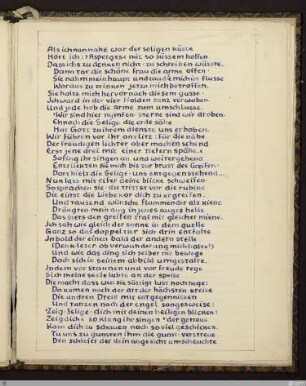 Als ich nun nahe war der seligen küste
Hört ich: ›Asperges‹ mit so süssem hallen
Dass ichs zu denken nicht · zu schreiben wüsste.
Dann tat die schöne frau die arme offen
Sie nahm mein haupt und taucht mich in flusse
Woraus zu trinken jetzt mich betroffen.
Sie holte mich hervor nach diesem gusse
Ich ward in der vier Holden tanz verwoben
Und jede hob die arme zum umschlusse.
›Wir sind hier nymfen · sterne sind wir droben.
Eh noch die Selige die erde sähe
Hat Gott zu ihrem dienste uns erhoben.
Wir führen vor ihr antlitz: für die nähe
Der freudigen lichter aber machen sehend
Erst jene drei mit einer tiefern spähe.‹
So fing ihr singen an und weitergehend
Entrückten sie mich bis zur brust des Greifen
Dort hielt die Selige · uns entgegenstehend...
›Nun lass mit eifer deine blicke schweifen‹
So sprachen sie · ›du trittst vor die rubine
Die einst die Liebe kor dich zu ergreifen.‹
Und tausend wünsche flammender als kiene
Drängten mein aug in jenes auges helle
Das stets den greifen traf mit gleicher miene.
Ich sah wie gleich der sonne in dem quelle
Ganz so das doppeltier sich drin entfalte
In bald der einen bald der andern stelle
(Denk leser ob verwunderung mich halte!)
Und wie das ding sich selber nie bewege
Doch sich in seinem abbild umgestalte.
Indem vor staunen und vor freude rege
Sich meine seele labte an der speise
Die macht dass wen sie sättigt lust noch hege:
Da kamen nach der art der höchsten kreise
Die andren Drei mit entgegennicken
Und tanzen nach der engel sangesweise:
›Zeig · Selige · dich mit deinen heiligen blicken!
Zeig dich‹ so klang ihr singen ›der getreue
Kam dich zu schauen nach so viel geschicken.
Tu uns zu gunsten ihm die gunst · verstreue
Den schleier der dein angesicht umscheuchte